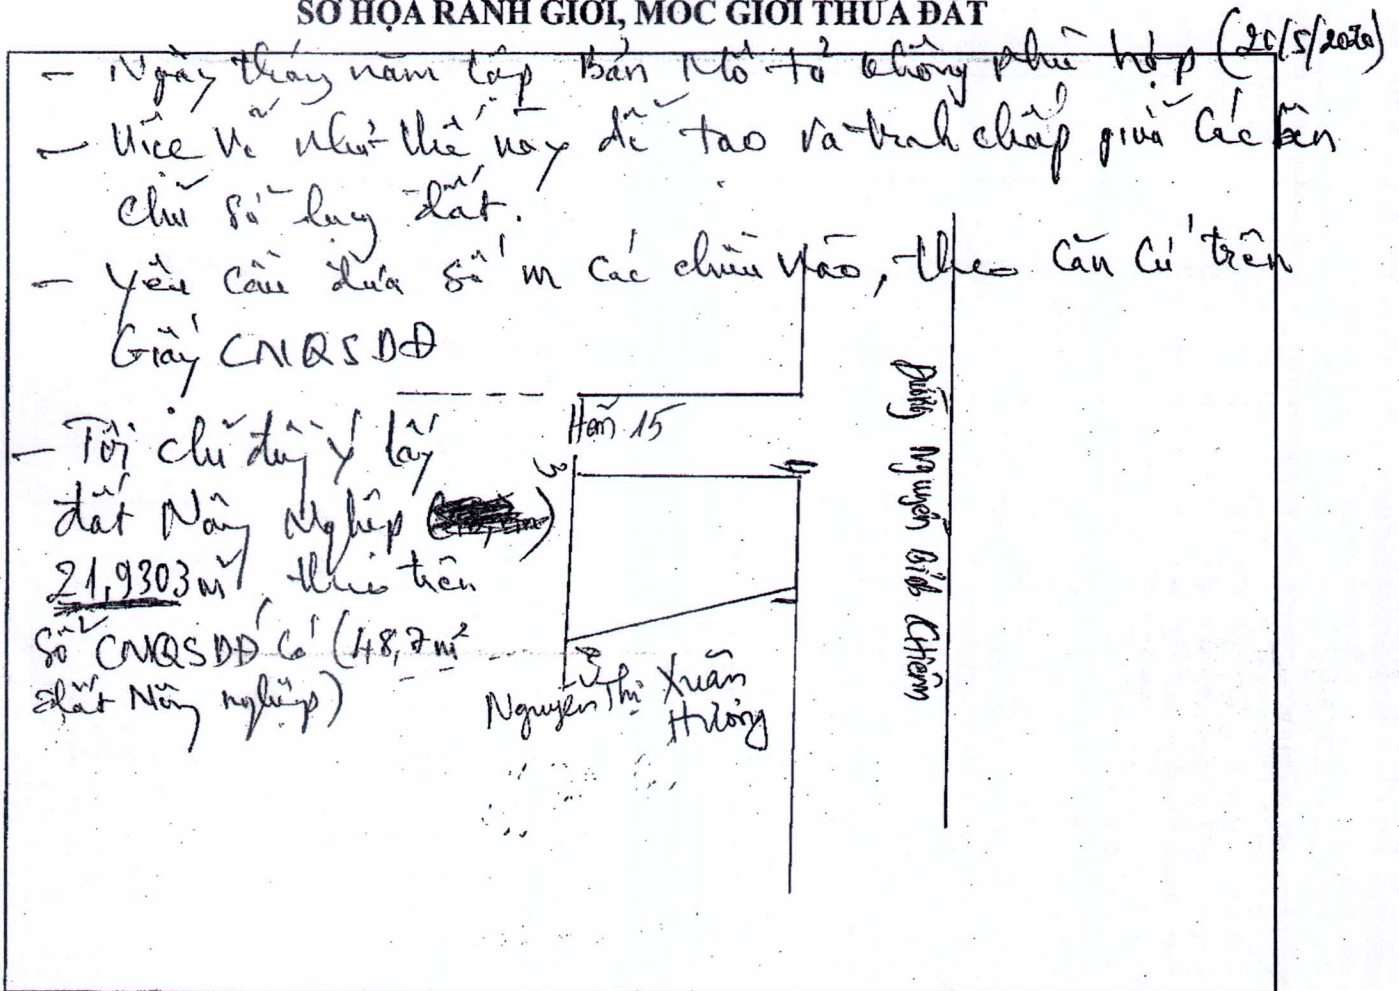 SƠ HỌA RANH GIỚI, MỐC GIỚI THỬA ĐẤT
- Ngày tháng năm lập Bản Mô tả không phù hợp (26/5/2020)
- Việc vẽ như thế này dễ tạo ra tranh chấp giữa các bên
chủ sử dụng đất.
- Yêu cầu đưa số m các chiều vào, theo căn cứ trên
Giấy CNQSDĐ
Hẻm 15
- Tôi chỉ đồng ý lấy
đất Nông Nghiệp
21,9303m² theo trên
sổ CNQSDĐ có (48,7m²
đất Nông nghiệp)
3
4
1
2
Nguyễn Thị Xuân
Hương
Đường Nguyễn Bỉnh Khiêm